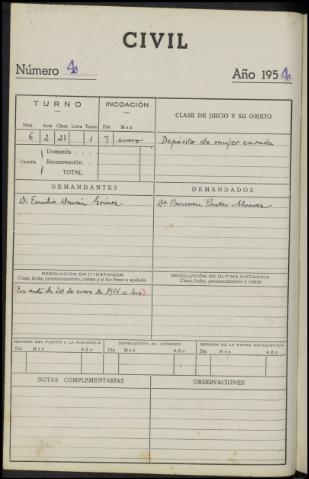 CIVIL
Número 4 Año 1954
TURNO INCOACIÓN CLASE DE JUICIO Y SU OBJETO
Núm. Acta Clase Letra Turno Día Mes
6 2 21 1 7 enero Depósito de mujer casada
Demanda
Cuantía Reconvención
TOTAL
DEMANDANTES DEMANDADOS
D. Emilio Durán Gómez Dª Carmen Pastor
RESOLUCIÓN EN 1.ª INSTANCIA RESOLUCIÓN DE ÚLTIMA INSTANCIA
Clase, fecha, pronunciamiento, costas y si fué firme o apelada. Clase, fecha, pronunciamiento y costas.
En auto de 20 de enero de
REMISIÓN DEL PLEITO A LA AUDIENCIA DEVOLUCIÓN AL JUZGADO REMISIÓN DE LA FICHA ESTADÍSTICA
Día Mes Año Día Mes Año Día Mes Año
NOTAS COMPLEMENTARIAS OBSERVACIONES